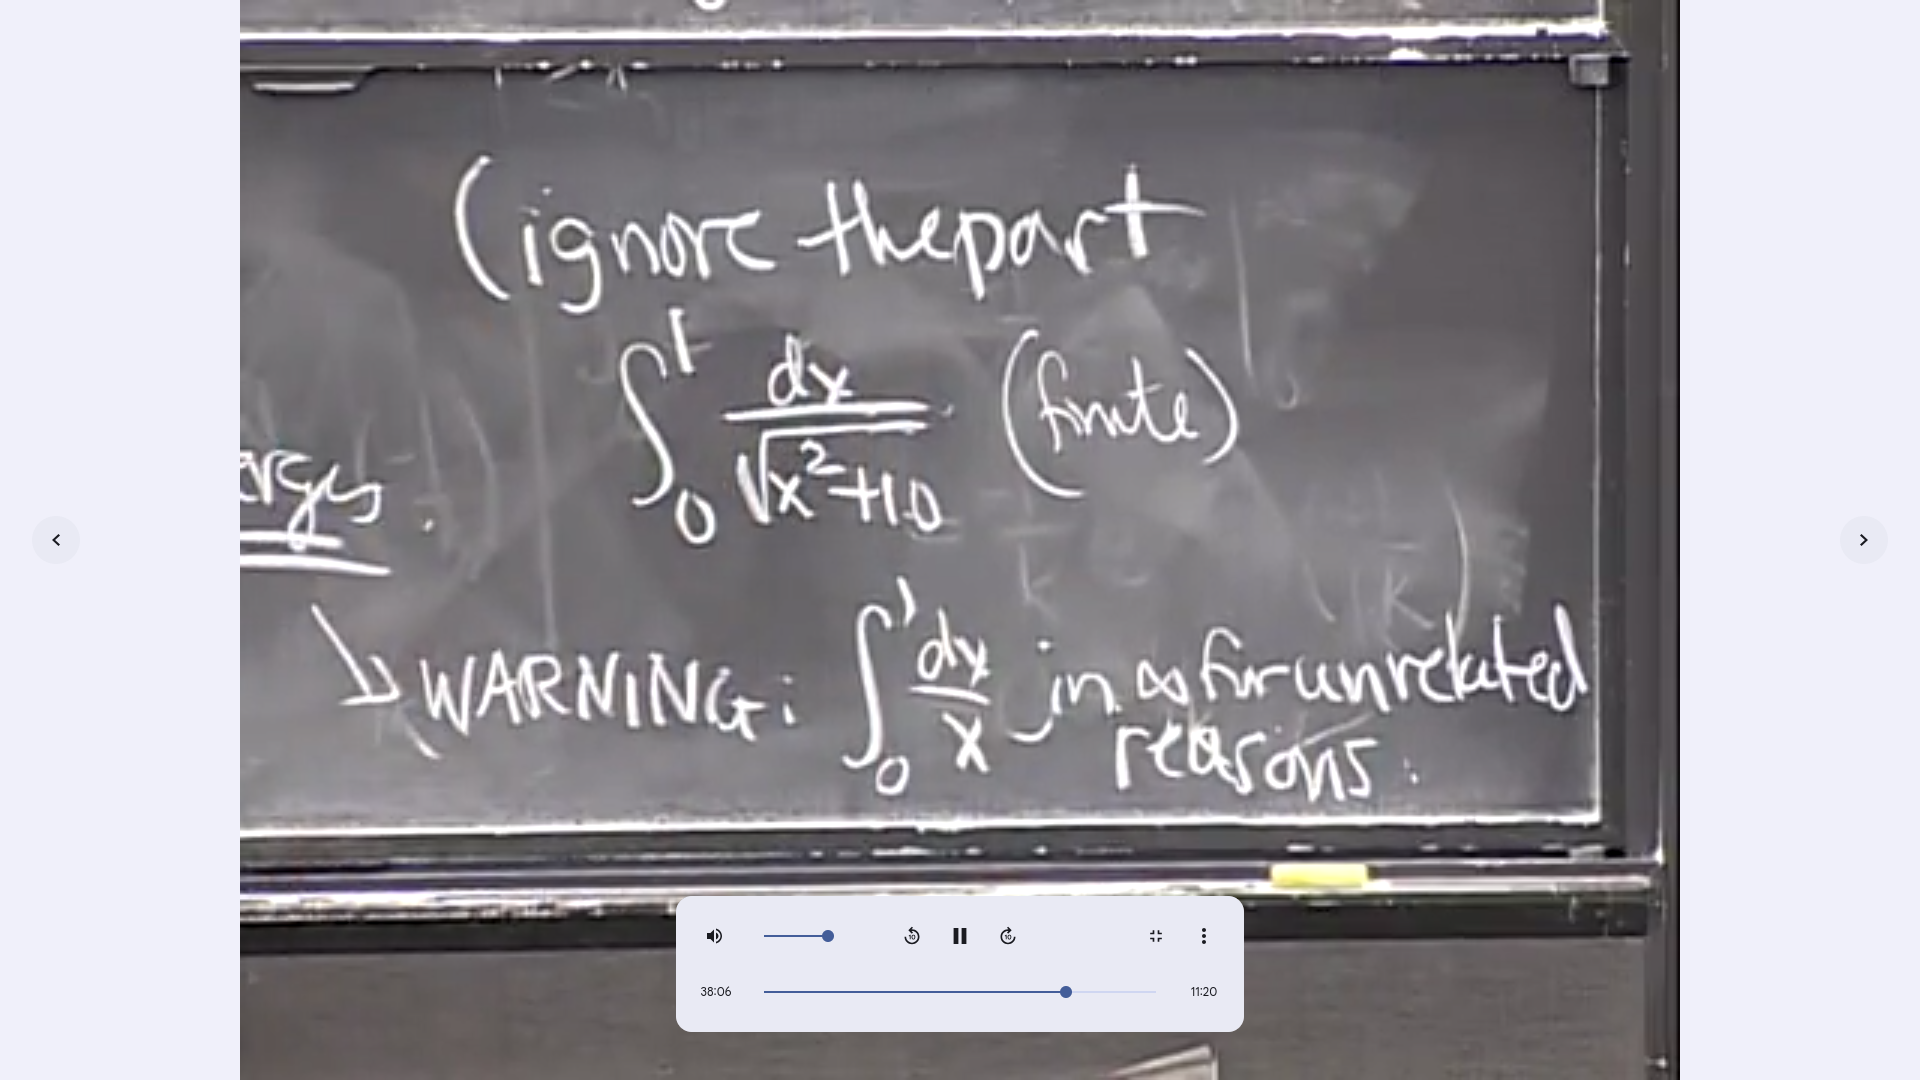 (ignore the part
∫₀¹ dx/√(x²+10) (finite)
WARNING: ∫₀¹ dx/x in ∞ for unrelated
reasons.
38:06 11:20